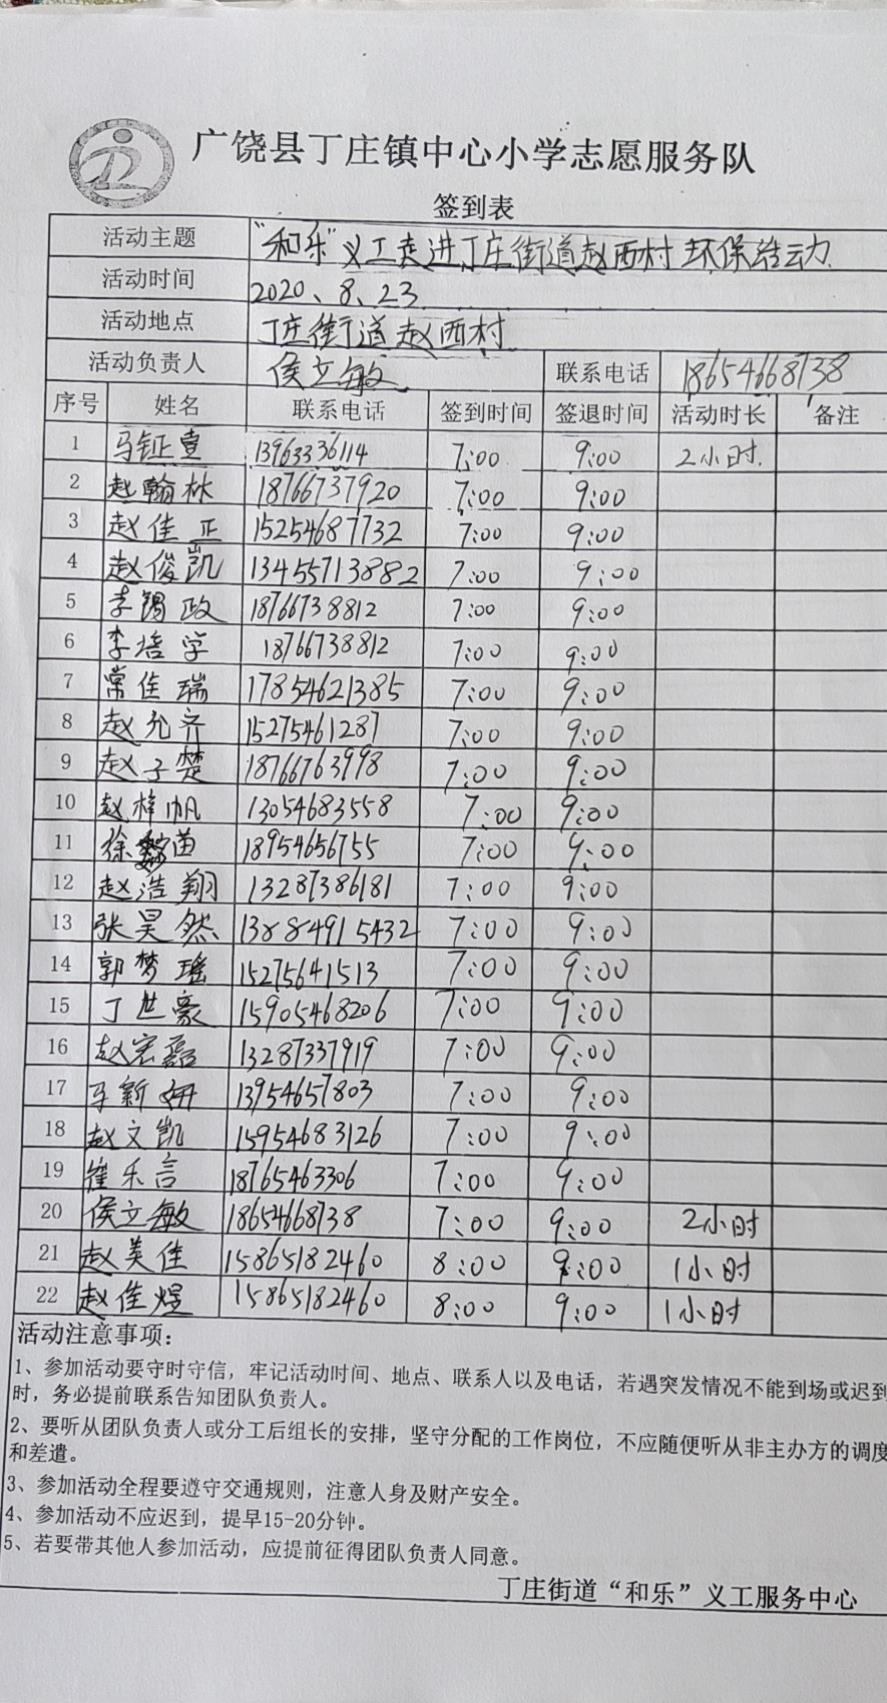 广饶县丁庄镇中心小学志愿服务队
签到表
活动主题 “和乐”义工走进丁庄街道赵西村环保活动
活动时间 2020、8、23
活动地点 丁庄街道赵西村
活动负责人 侯立敏 联系电话 18654668738
序号 姓名 联系电话 签到时间 签退时间 活动时长 备注
1 马钲壹 13963336114 7:00 9:00 2小时.
2 赵翰林 18766737920 7:00 9:00
3 赵佳正 15254687732 7:00 9:00
4 赵俊凯 13455713882 7:00 9:00
5 李锡政 18766738812 7:00 9:00
6 李培学 18766738812 7:00 9:00
7 常佳瑞 17854621385 7:00 9:00
8 赵允齐 15275461287 7:00 9:00
9 赵子楚 18766763998 7:00 9:00
10 赵梓帆 13054683558 7:00 9:00
11 徐 苗 18954656755 7:00 9:00
12 赵浩翔 13287386181 7:00 9:00
13 张昊然 13884915432 7:00 9:00
14 郭梦瑶 15275641513 7:00 9:00
15 丁世豪 15905468206 7:00 9:00
16 赵宏磊 13287337919 7:00 9:00
17 马新妍 13954657803 7:00 9:00
18 赵文凯 15954683126 7:00 9:00
19 崔乐言 18765463306 7:00 9:00
20 侯立敏 18654668738 7:00 9:00 2小时
21 赵美佳 15865182460 8:00 9:00 1小时
22 赵佳煜 15865182460 8:00 9:00 1小时
活动注意事项：
1、参加活动要守时守信，牢记活动时间、地点、联系人以及电话，若遇突发情况不能到场或迟到
时，务必提前联系告知团队负责人。
2、要听从团队负责人或分工后组长的安排，坚守分配的工作岗位，不应随便听从非主办方的调度
和差遣。
3、参加活动全程要遵守交通规则，注意人身及财产安全。
4、参加活动不应迟到，提早15-20分钟。
5、若要带其他人参加活动，应提前征得团队负责人同意。
丁庄街道“和乐”义工服务中心